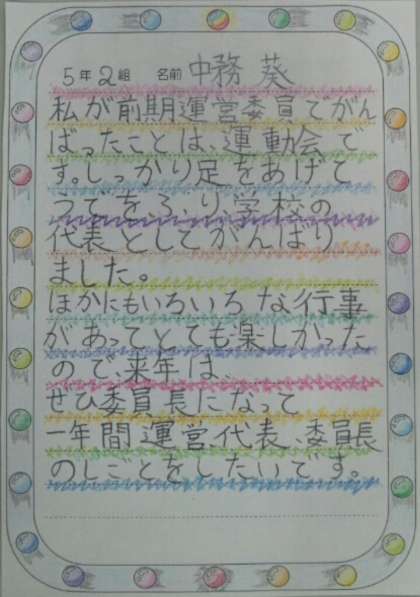 5年2組 名前 中務 葵
私が前期運営委員でがん
ばったことは、運動会で
す。しっかり足をあげて
うでをふり学校の
代表としてがんばり
ました。
ほかにもいろいろな行事
があってとても楽しかった
ので、来年は、
ぜひ委員長になって
一年間運営代表、委員長
のしごとをしたいです。